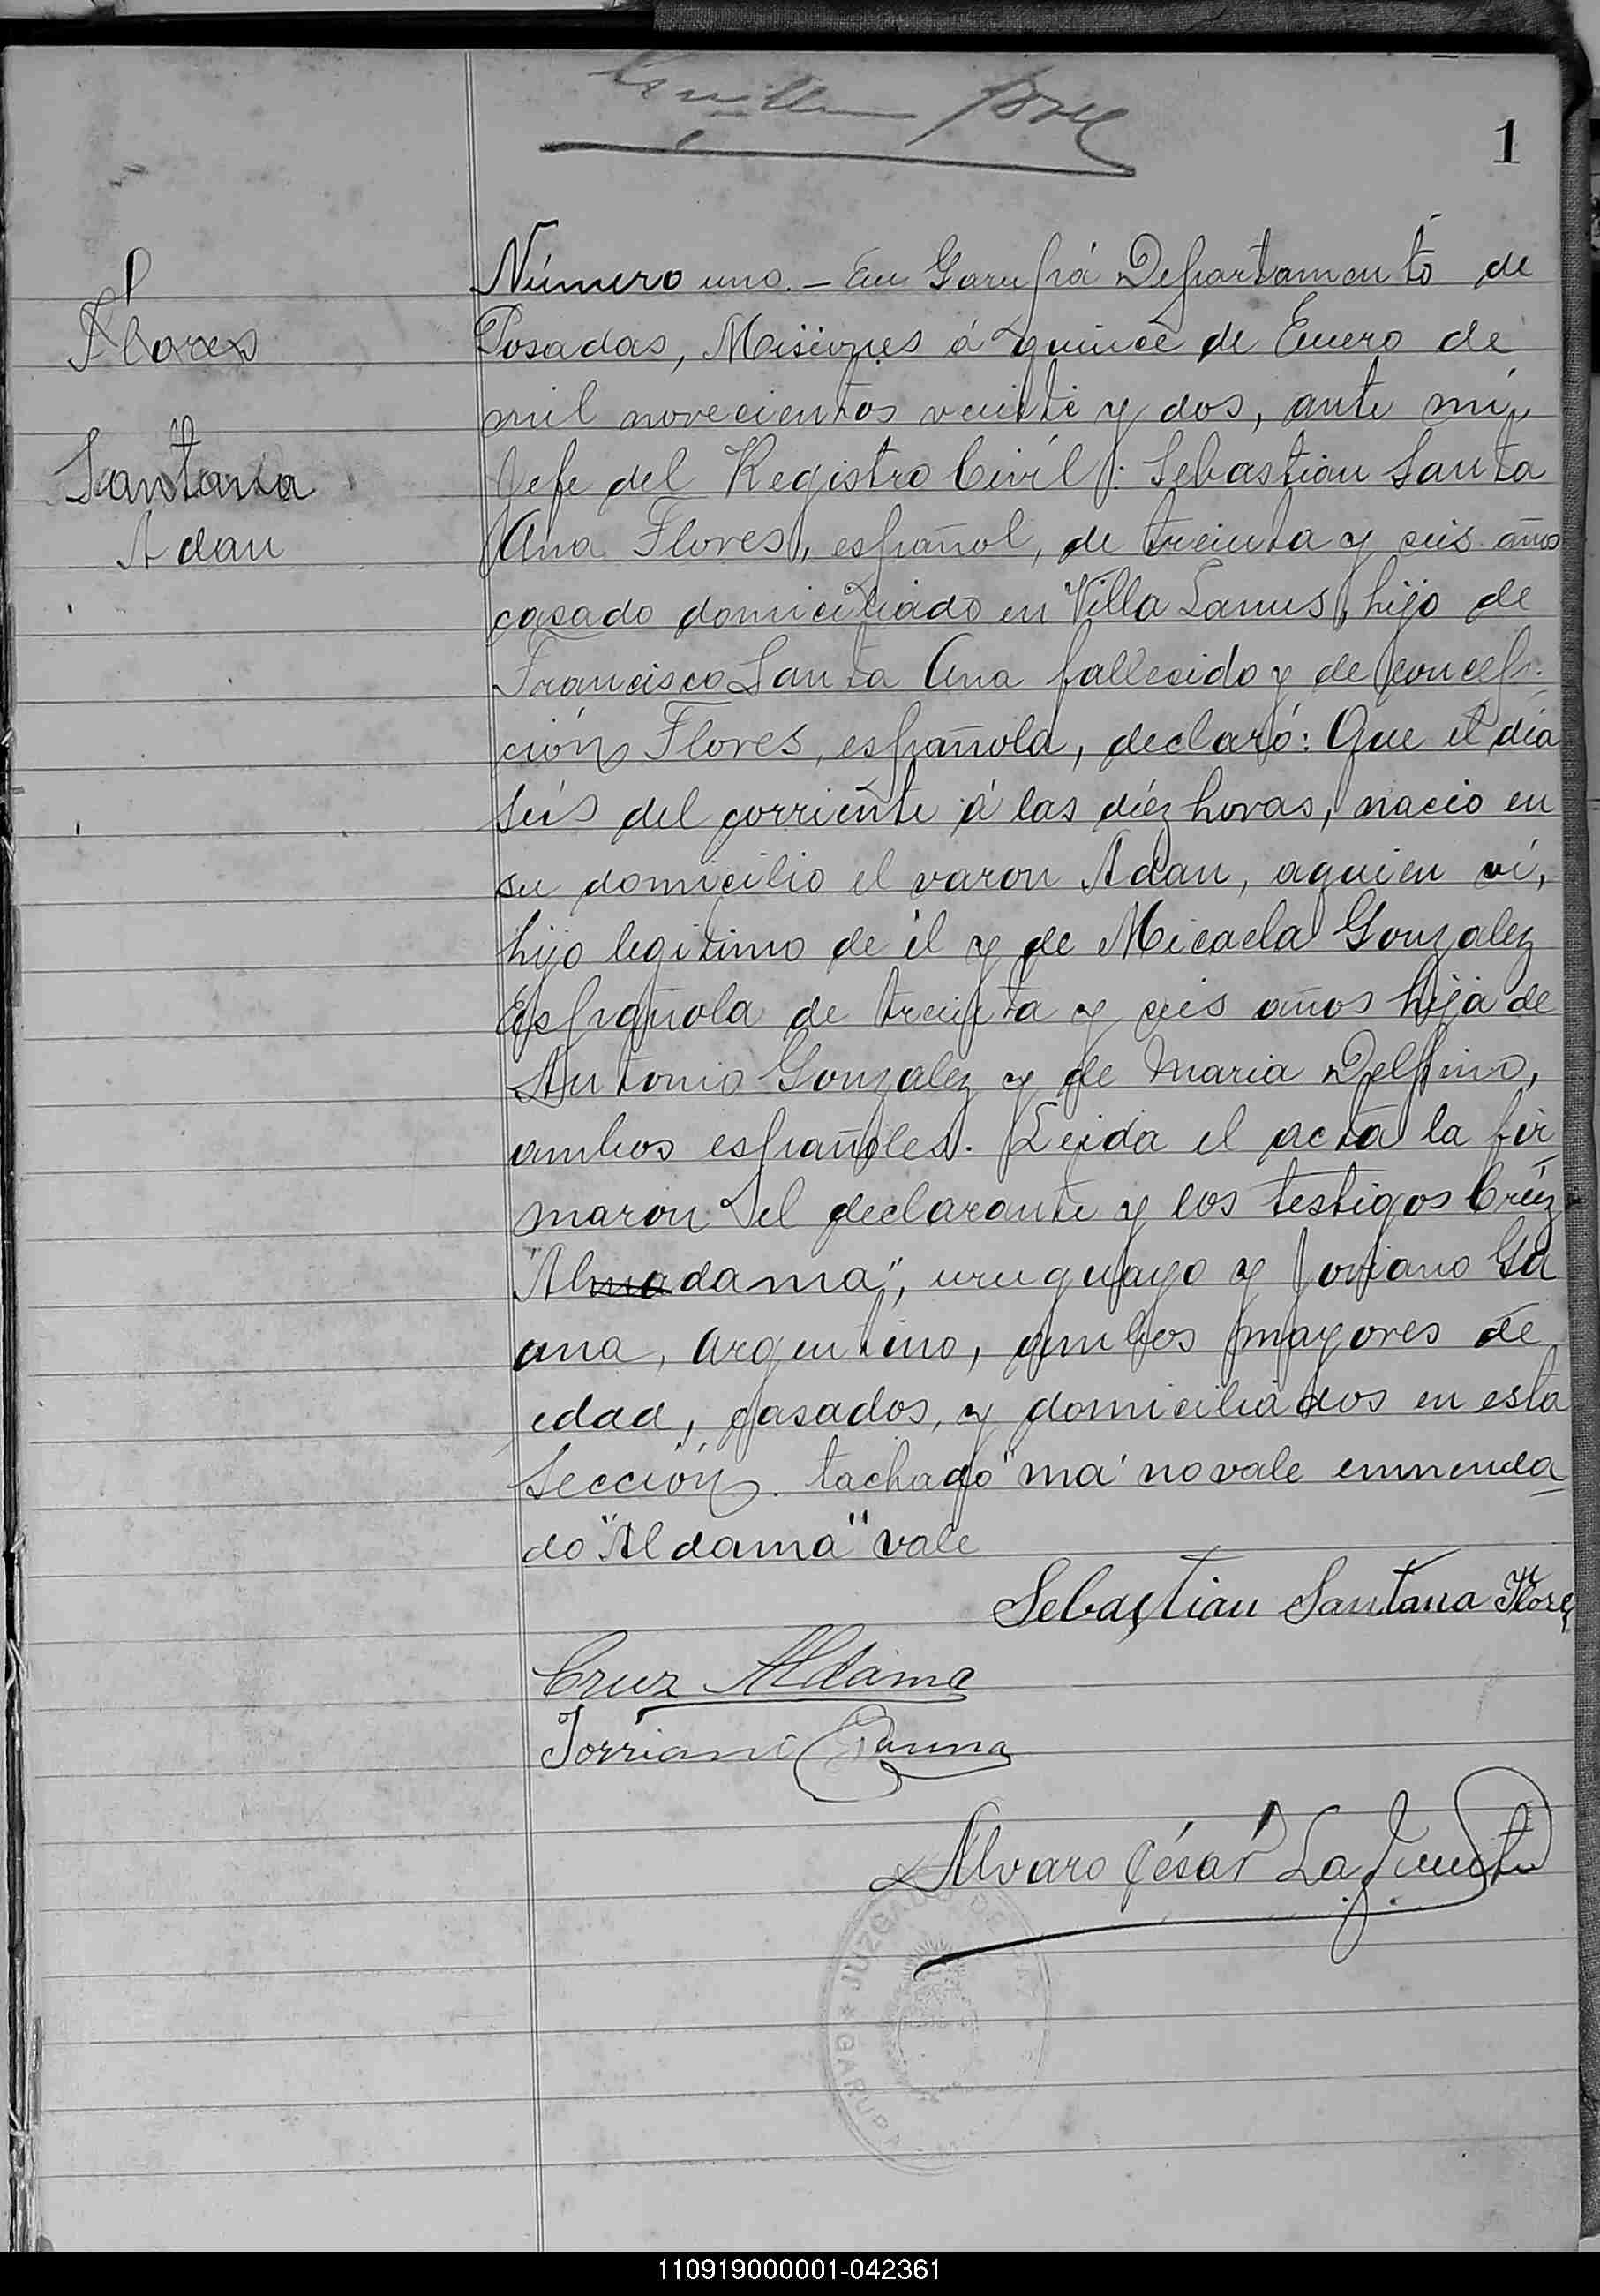 1
Flores
Santana
Adan
Número uno. – En Garupá Departamento de
Posadas, Misiones á quince de Enero de
mil novecientos veinte y dos, ante mí,
Jefe del Registro Civil: Sebastian Santa
Ana Flores, español, de treinta y seis años
casado domiciliado en Villa Lanus, hijo de
Francisco Santa Ana fallecido y de concep-
ción Flores, española, declaró: Que el dia
seis del corriente á las diéz horas, nació en
su domicilio el varon Adan, aquien ví,
hijo legitimo de él y de Micaela Gonzalez
Española de treinta y seis años hija de
Antonio Gonzalez y de Maria Delfino,
ambos españoles. Leida el acta la fir
maron el declarante y los testigos Crúz
"Almadama", uruguayo y Joriano Ga
una, argentino, ambos mayores de
edad, casados, y domiciliados en esta
Sección. tachado "ma" no vale enmenda
do "Aldama" vale
Sebastian Santana Flores
Cruz Aldama
Torriani Gauna
Alvaro César Lafuente
JUZGADO DE PAZ
GARUPA
110919000001-042361